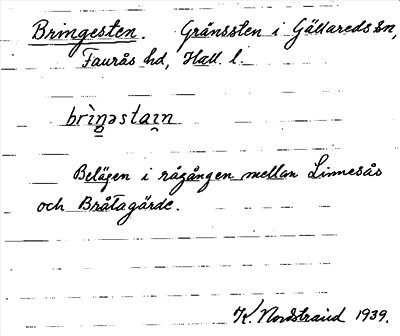 Bringesten. Gränssten i Gällareds sn,
Faurås hd, Hall. l.
brìŋ̲əstai̯n
Belägen i rågången mellan Linnesås
och Bråtagärde.
K. Nordstrand 1939.